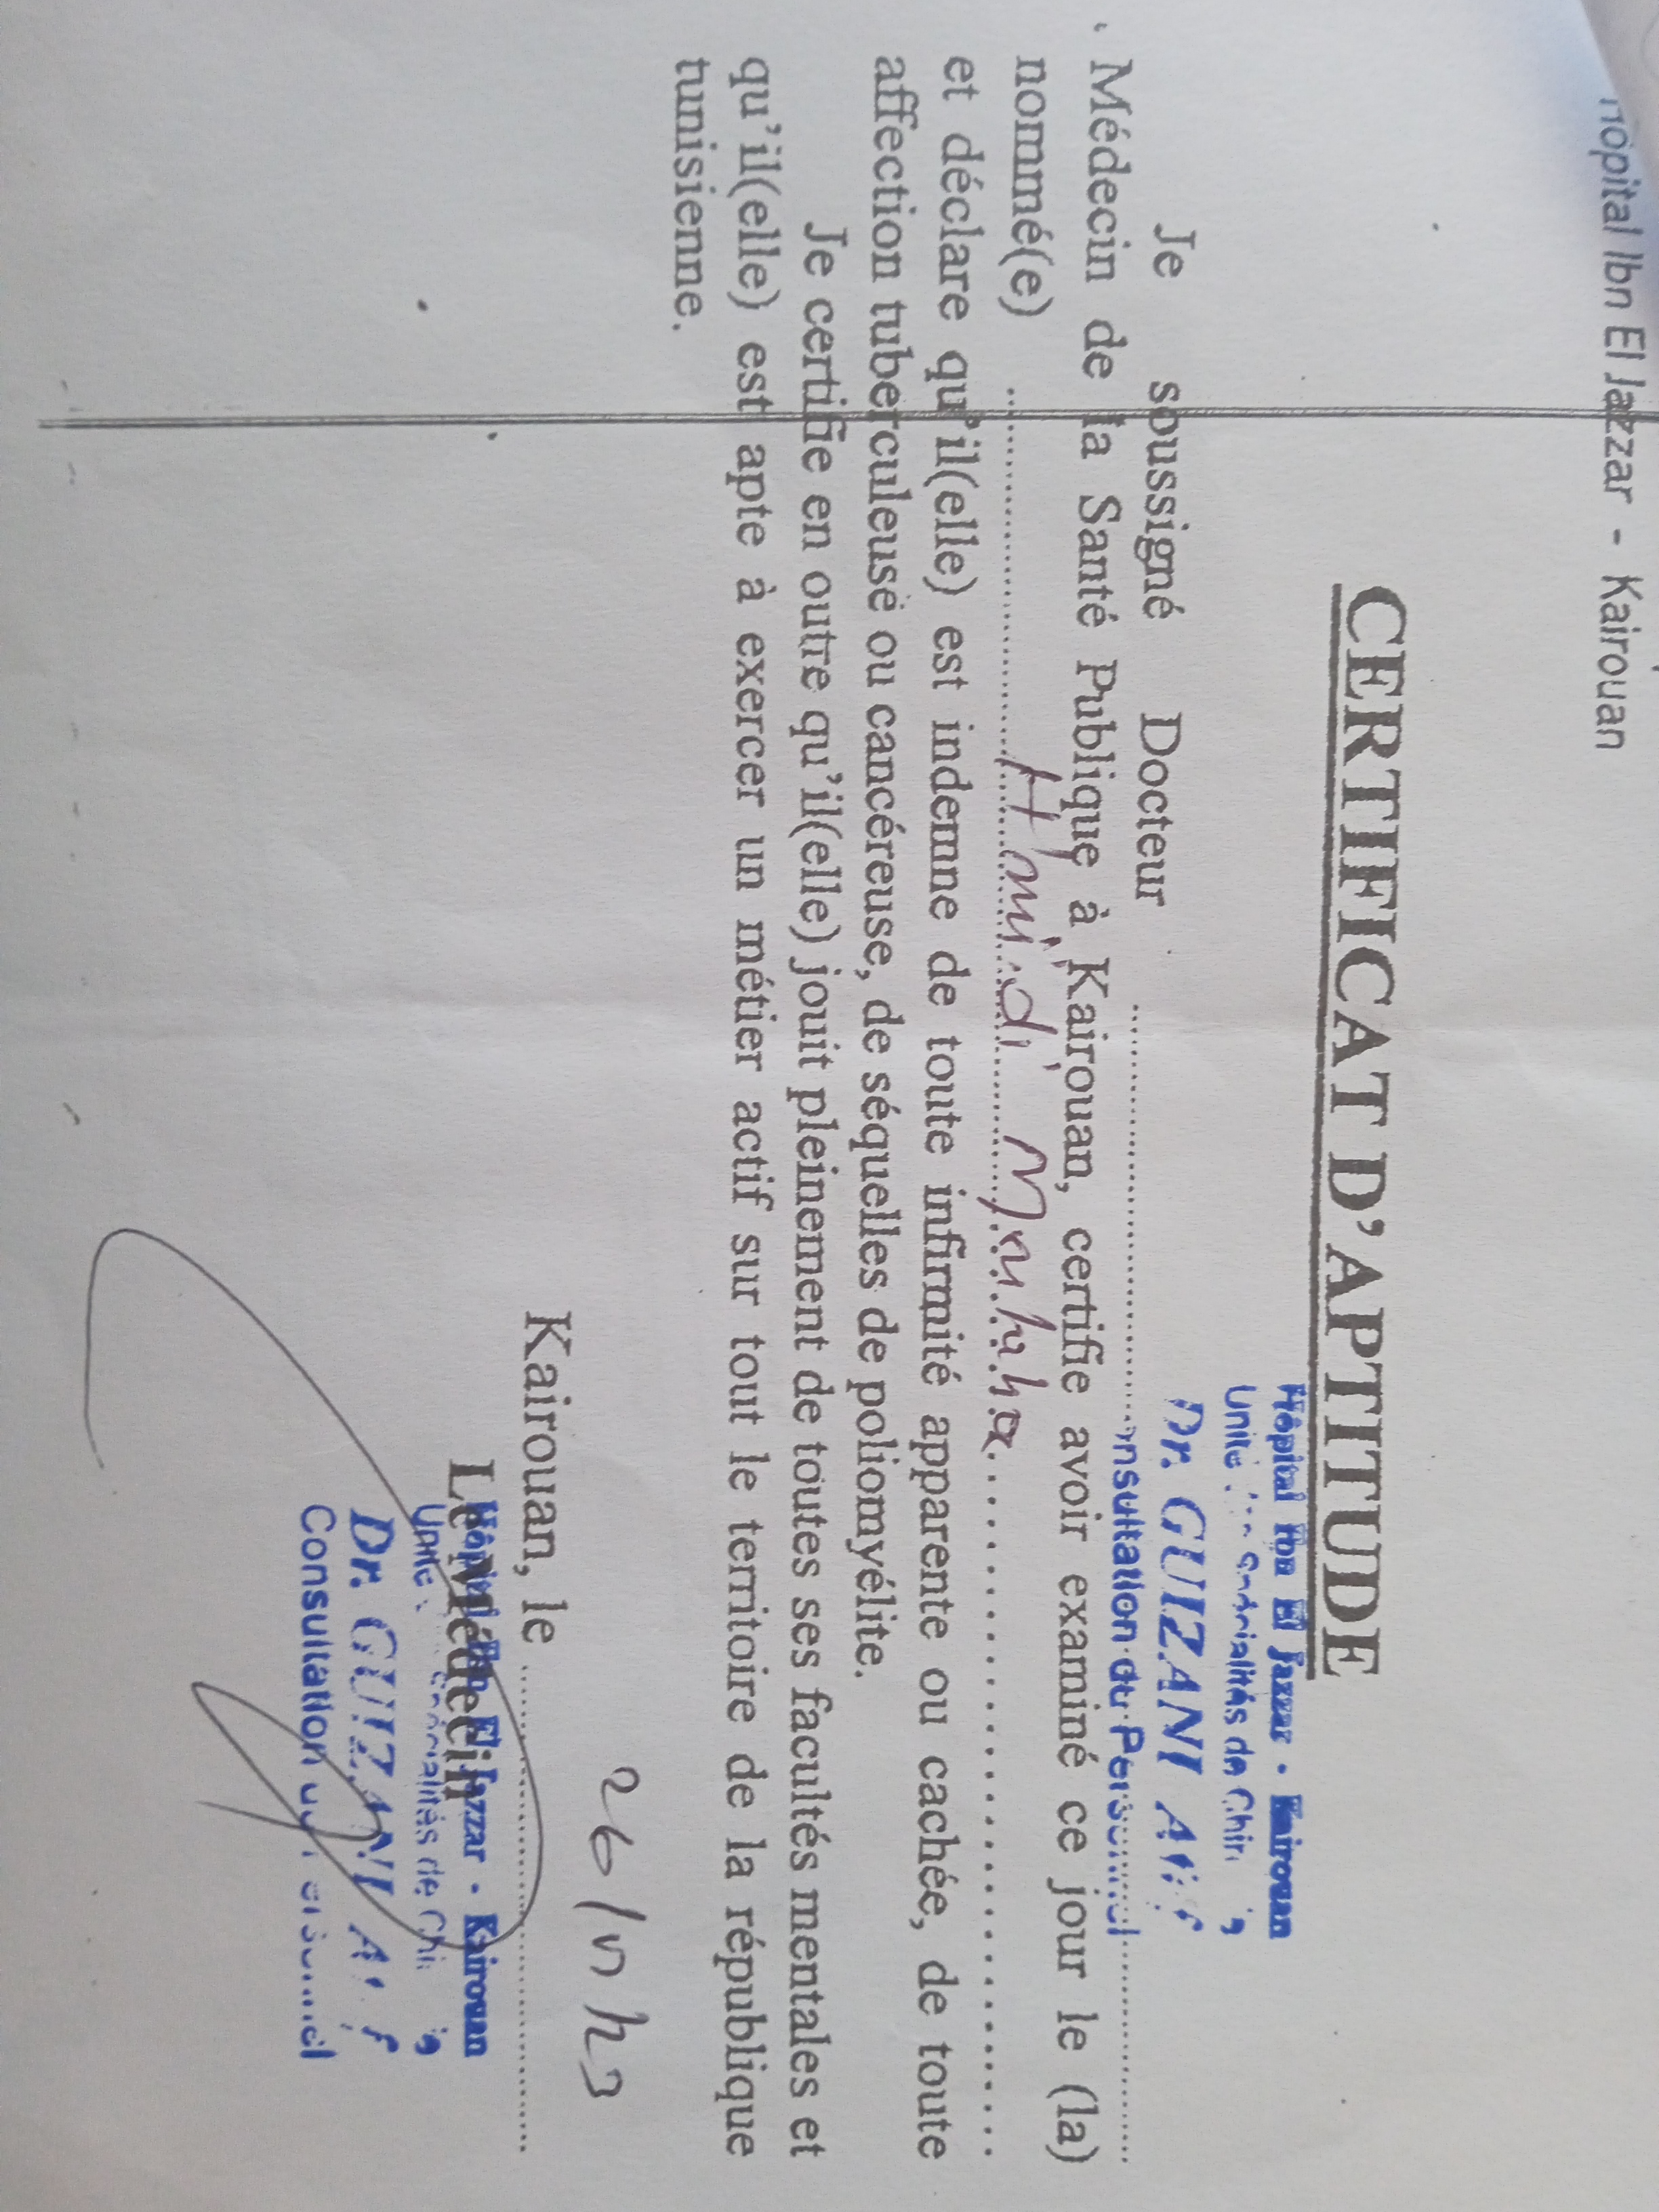 Hôpital Ibn El Jazzar - Kairouan
CERTIFICAT D'APTITUDE
Hôpital Ibn El Jazzar - Kairouan
Unité de Spécialités de
Dr. GUIZANI
Consultation du Personnel
Je soussigné Docteur
Médecin de la Santé Publique à Kairouan, certifie avoir examiné ce jour le (la)
nommé(e) Hmidi
et déclare qu'il(elle) est indemne de toute infirmité apparente ou cachée, de toute
affection tuberculeuse ou cancéreuse, de séquelles de poliomyélite.
Je certifie en outre qu'il(elle) jouit pleinement de toutes ses facultés mentales et
qu'il(elle) est apte à exercer un métier actif sur tout le territoire de la république
tunisienne.
Kairouan, le
Le Médecin
Hôpital Ibn El Jazzar - Kairouan
Unité de Spécialités de
Dr. GUIZANI
Consultation du Personnel